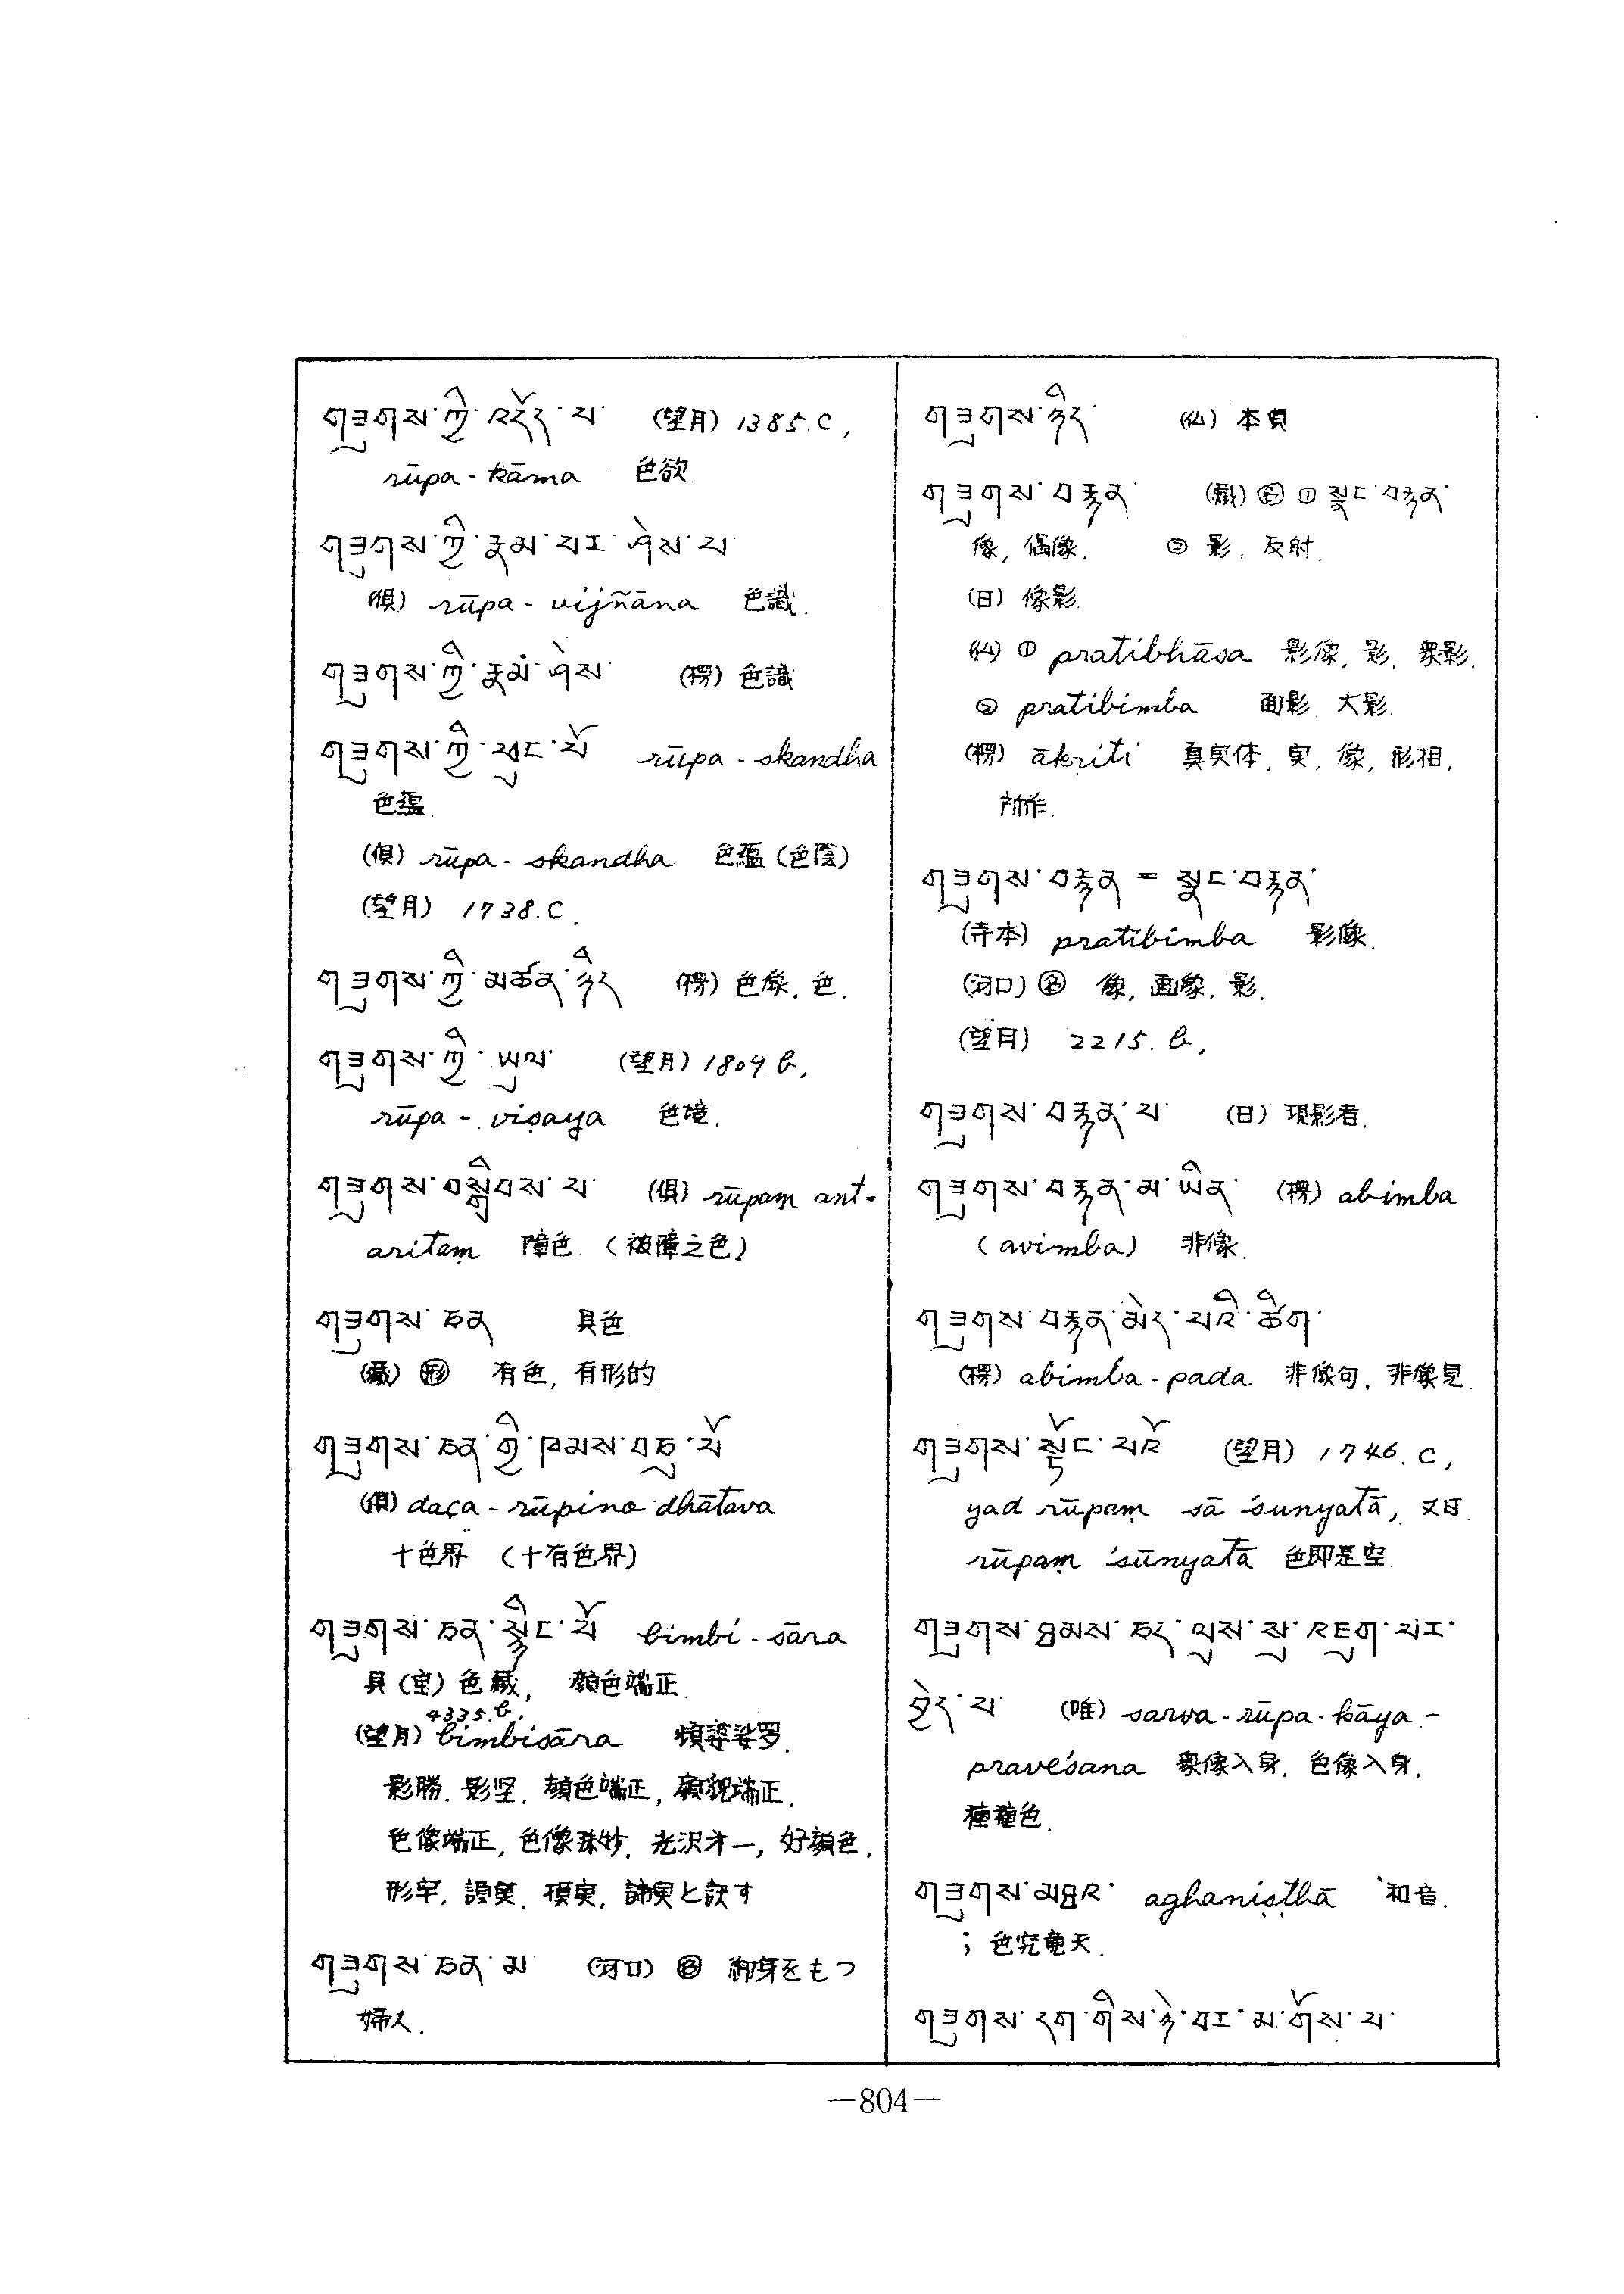 གཟུགས་ཀྱི་འདོད་པ (望月) 1385.c,
rūpa-kāma 色欲
གཟུགས་ཀྱི་རྣམ་པར་ཤེས་པ
(倶) rūpa-vijñāna 色識.
གཟུགས་ཀྱི་རྣམ་ཤེས (楞) 色識
གཟུགས་ཀྱི་ཕུང་པོ rūpa-skandha
色蘊.
(倶) rūpa-skandha 色蘊 (色陰)
(望月) 1738.c.
གཟུགས་ཀྱི་མཚན་ཉིད (楞) 色像, 色.
གཟུགས་ཀྱི་ཡུལ (望月) 1809.b,
rūpa-viṣaya 色境.
གཟུགས་བསྒྲིབས་པ (倶) rūpaṃ ant-
aritaṃ 障色. (被障之色)
གཟུགས་ཅན 具色
(蔵) ㊒ 有色, 有形的
གཟུགས་ཅན་གྱི་ཁམས་བཅུ་པོ
(倶) daça-rūpino dhātava
十色界 (十有色界)
གཟུགས་ཅན་སྙིང་པོ bimbi-sāra
具(宝)色蔵, 顔色端正
4335.b,
(望月) bimbisāra 頻婆娑罗.
影勝. 影坚. 顔色端正, 顔貌端正.
色像端正, 色像殊妙. 光沢才一, 好顔色.
形牢, 諦実と訳す
གཟུགས་ཅན་མ (河口) 御身をもつ
婦人.
གཟུགས་ཉིད (仏) 本質
གཟུགས་བརྙན (蔵) ① སྣང་བརྙན
像, 偶像. ② 影, 反射.
(日) 像影.
(仏) ① pratibhāsa 影像, 影, 衆影.
② pratibimba 面影 大影.
(楞) ākṛiti 真実体, 実, 像, 形相,
所作.
གཟུགས་བརྙན = སྣང་བརྙན
(寺本) pratibimba 影像.
(河口) ㊔ 像, 画像, 影.
(望月) 2215.b,
གཟུགས་བརྙན་པ (日) 現影者.
གཟུགས་བརྙན་མ་ཡིན (楞) abimba
(avimba) 非像.
གཟུགས་བརྙན་མེད་པའི་ཚིག
(楞) abimba-pada 非像句, 非像見.
གཟུགས་སྟོང་པའོ (望月) 1746.c,
yad rūpaṃ sā śunyatā, 又曰.
rūpaṃ śūnyatā 色即是空.
གཟུགས་ཐམས་ཅད་ལུས་སུ་འཇུག་པར་
བྱེད་པ (唯) sarva-rūpa-kāya-
praveśana 衆像入身, 色像入身,
種種色.
གཟུགས་མཐར aghaniṣṭhā 和音.
; 色究竟天.
གཟུགས་དག་གིས་ཉེ་བར་མ་གོས་པ
—804—